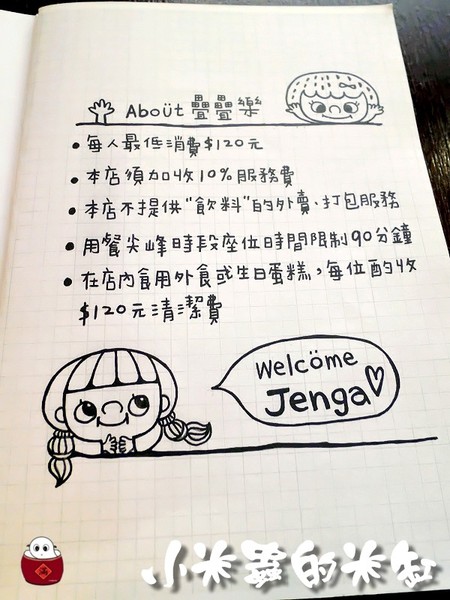 Aboüt 疊疊樂
• 每人最低消費$120元
• 本店須加收10%服務費
• 本店不提供"飲料"的外賣、打包服務
• 用餐尖峰時段座位時間限制90分鐘
• 在店內食用外食或生日蛋糕,每位酌收
$120元清潔費
Welcöme
Jenga♡
小米蟲的米缸